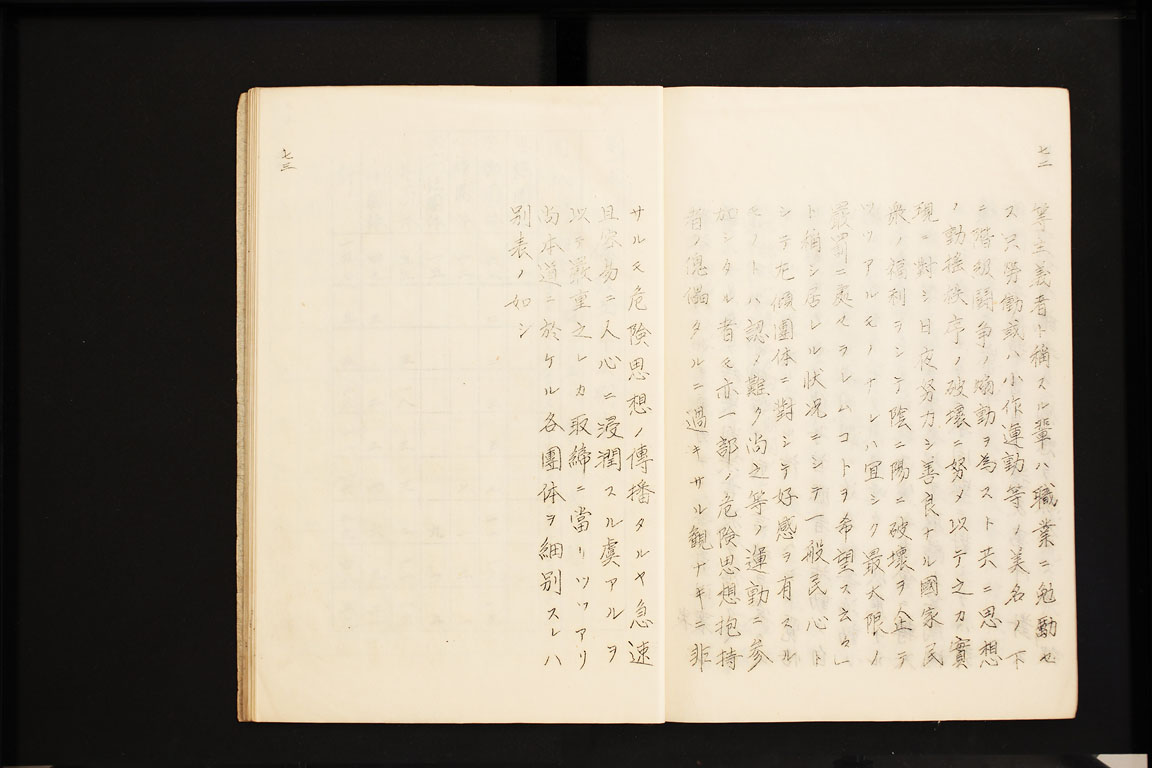 七二
等主義者ト稱スル輩ハ職業ニ勉勵セ
ス只勞働或ハ小作運動等ノ美名ノ下
ニ階級鬪争ノ煽動ヲ為スト共ニ思想
ノ動搖秩序ノ破壞ニ努メ以テ之カ實
現ニ對シ日夜努力シ善良ナル國家民
衆ノ福利ヲシテ陰ニ陽ニ破壞ヲ企テ
ツツアルモノナレハ宜シク最大限ノ
嚴罰ニ處セラレムコトヲ希望ス云々」
ト稱シ居レル状况ニシテ一般民心ト
シテ左傾團体ニ對シテ好感ヲ有スル
モノトハ認メ難ク尚之等ノ運動ニ参
加シタル者モ亦一部ノ危険思想抱持
者ノ傀儡タルニ過キサル観ナキニ非
七三
サルモ危険思想ノ傳播タルヤ急速
且容易ニ人心ニ浸潤スル虞アルヲ
以テ嚴重之レカ取締ニ當リツツアリ
尚本道ニ於ケル各團体ヲ細別スレハ
別表ノ如シ